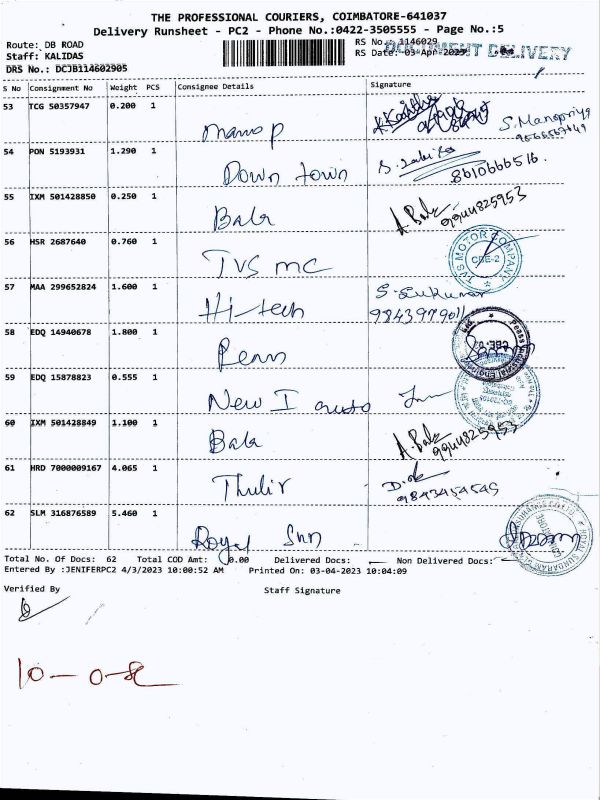 THE PROFESSIONAL COURIERS, COIMBATORE-641037
Delivery Runsheet - PC2 - Phone No.:0422-3505555 - Page No.:5
Route: DB ROAD
RS No.: 1146029
Staff: KALIDAS
RS Date: 03-Apr-2023
DOCUMENT DELIVERY
DRS No.: DCJB114602905
S No Consignment No Weight PCS Consignee Details Signature
53 TCG 50357947 0.200 1
S. Manopriya
54 PON 5193931 1.290 1 Down town 8610666516.
55 IXM 501428850 0.250 1 Bala A. Bala 9944825953
56 HSR 2687640 0.760 1 TVS MC
TVS MOTOR COMPANY
CBE-2
57 MAA 299652824 1.600 1 Hi-tech S. Sukumar
58 EDQ 14940678 1.800 1 Penn
59 EDQ 15878823 0.555 1 New I auto
60 IXM 501428849 1.100 1 Bala A. Bala 9944825953
61 HRD 7000009167 4.065 1 Thulir
62 SLM 316876589 5.460 1 Royal Sun
Total No. Of Docs: 62 Total COD Amt: 0.00 Delivered Docs: Non Delivered Docs:
Entered By :JENIFERPC2 4/3/2023 10:00:52 AM Printed On: 03-04-2023 10:04:09
Verified By Staff Signature